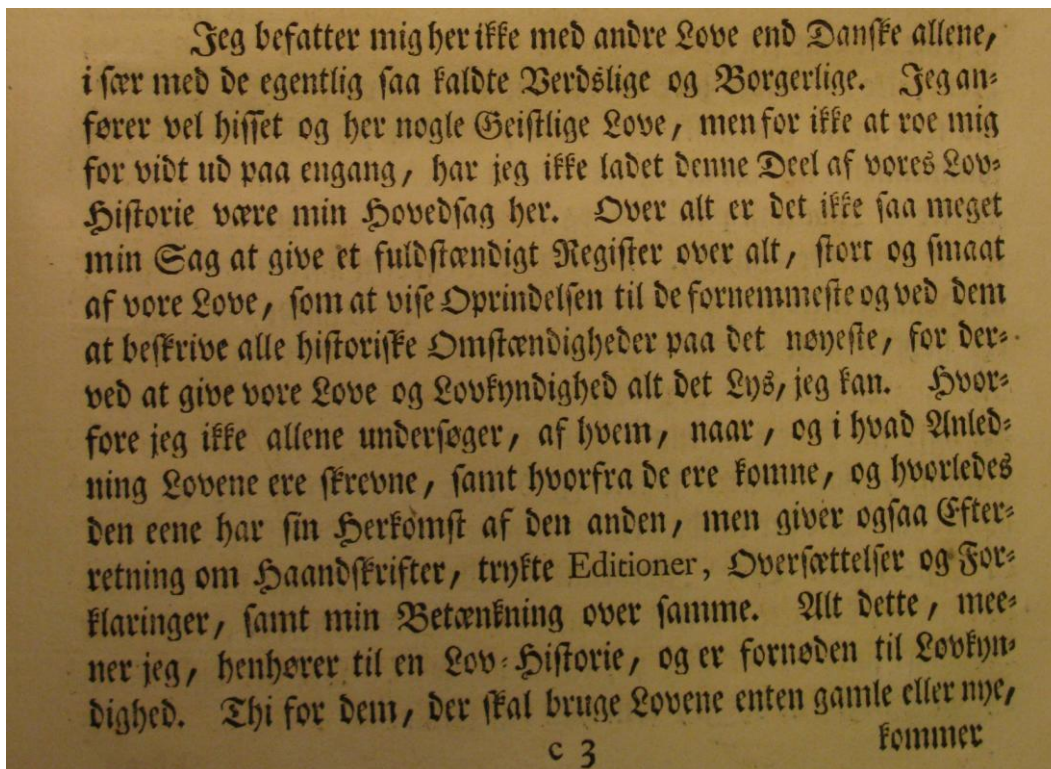 Jeg befatter mig her ikke med andre Love end Danske allene,
i sær med de egentlig saa kaldte Verdslige og Borgerlige. Jeg an-
fører vel hisset og her nogle Geistlige Love, men for ikke at roe mig
for vidt ud paa engang, har jeg ikke ladet denne Deel af vores Lov-
Historie være min Hovedsag her. Over alt er det ikke saa meget
min Sag at give et fuldstændigt Register over alt, stort og smaat
af vore Love, som at vise Oprindelsen til de fornemmeste og ved dem
at beskrive alle historiske Omstændigheder paa det nøyeste, for der-
ved at give vore Love og Lovkyndighed alt det Lys, jeg kan. Hvor-
fore jeg ikke allene undersøger, af hvem, naar, og i hvad Anled-
ning Lovene ere skrevne, samt hvorfra de ere komne, og hvorledes
den eene har sin Herkomst af den anden, men giver ogsaa Efter-
retning om Haandskrifter, trykte Editioner, Oversættelser og For-
klaringer, samt min Betænkning over samme. Alt dette, mee-
ner jeg, henhører til en Lov-Historie, og er fornøden til Lovkyn-
dighed. Thi for dem, der skal bruge Lovene enten gamle eller nye,
c 3 kommer